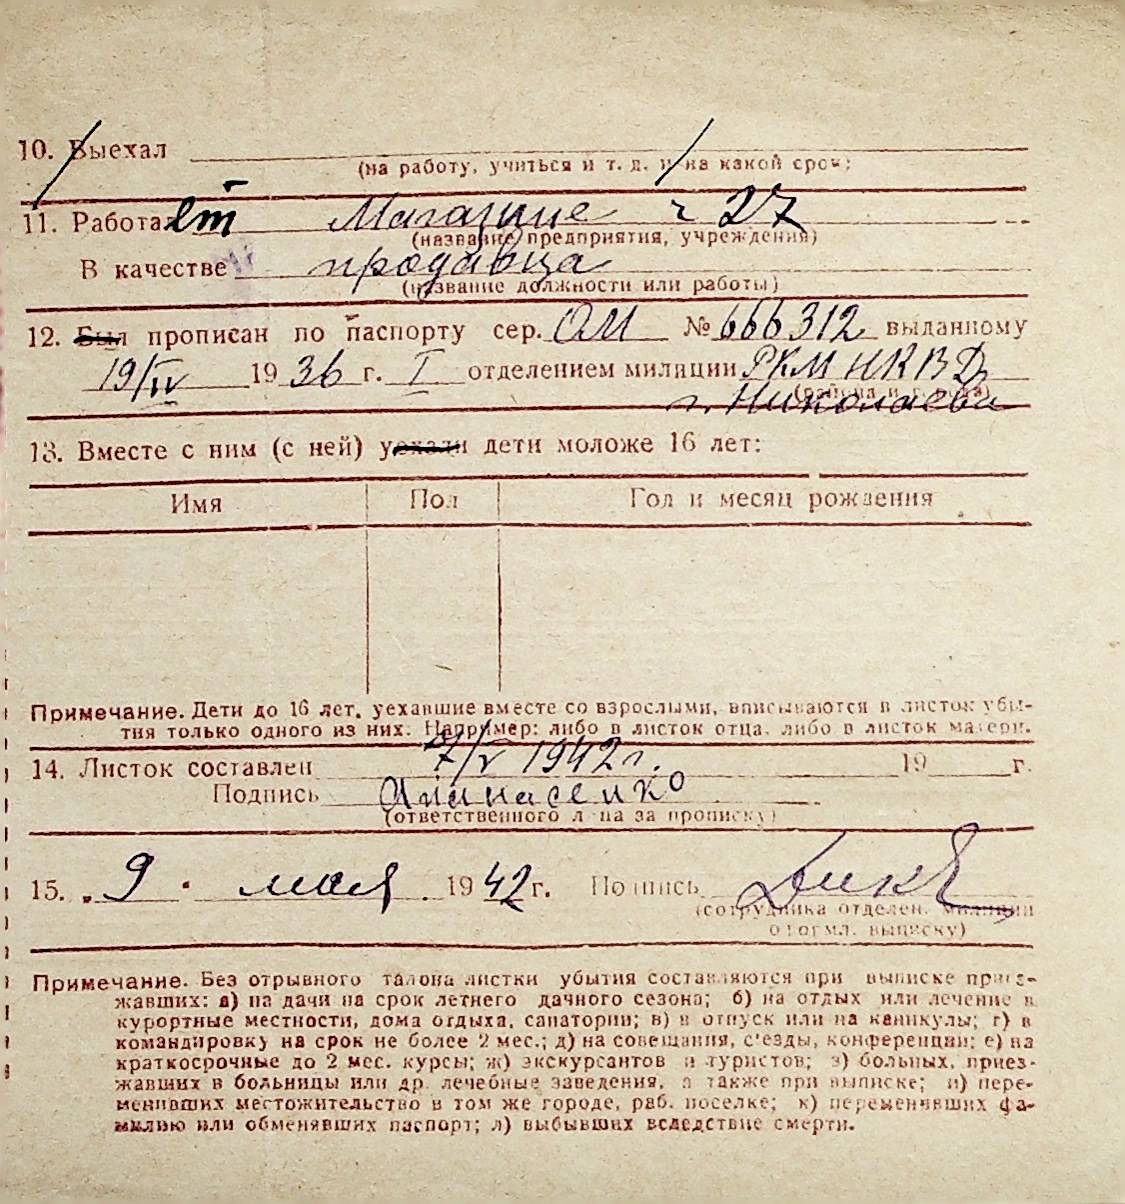 10. Выехал
(на работу, учиться и т. д. и на какой срок)
11. Работает Магазине № 27
(название предприятия, учреждения)
В качестве продавца
(название должности или работы)
12. Был прописан по паспорту сер. ОМ № 666312 выданному
19/IV 1936 г. I отделением милиции РКМ НКВД
(района и города)
г. Николаева
13. Вместе с ним (с ней) уехали дети моложе 16 лет:
Имя Пол Год и месяц рождения
Примечание. Дети до 16 лет, уехавшие вместе со взрослыми, вписываются в листок убы-
тия только одного из них. Например: либо в листок отца, либо в листок матери.
14. Листок составлен 7/V 1942 г. 19 г.
Подпись Апанасенко
(ответственного л-ца за прописку)
15. „9" мая 1942 г. Подпись
(сотрудника отделен. милиции
оформл. выписку)
Примечание. Без отрывного талона листки убытия составляются при выписке приез-
жавших: а) на дачи на срок летнего дачного сезона; б) на отдых или лечение в
курортные местности, дома отдыха, санатории; в) в отпуск или на каникулы; г) в
командировку на срок не более 2 мес.; д) на совещания, с'езды, конференции; е) на
краткосрочные до 2 мес. курсы; ж) экскурсантов и туристов; з) больных, приез-
жавших в больницы или др. лечебные заведения, а также при выписке; и) пере-
менивших местожительство в том же городе, раб. поселке; к) переменявших фа-
милию или обменявших паспорт; л) выбывших вследствие смерти.